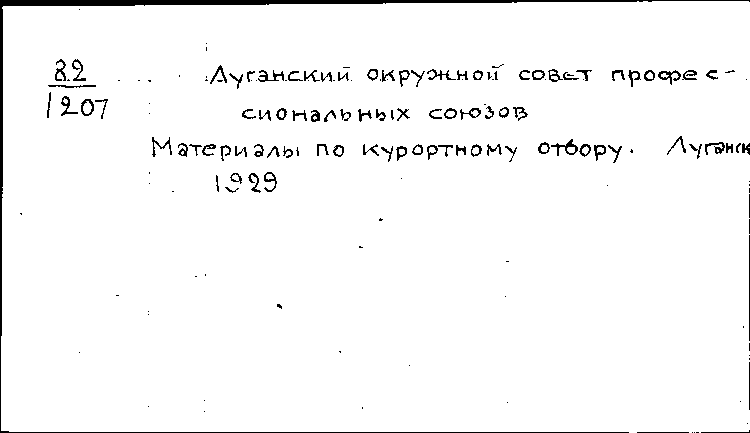 82
1207
Луганский окружной совет профес-
сиональных союзов
Материалы по курортному отбору. Луганск
1929